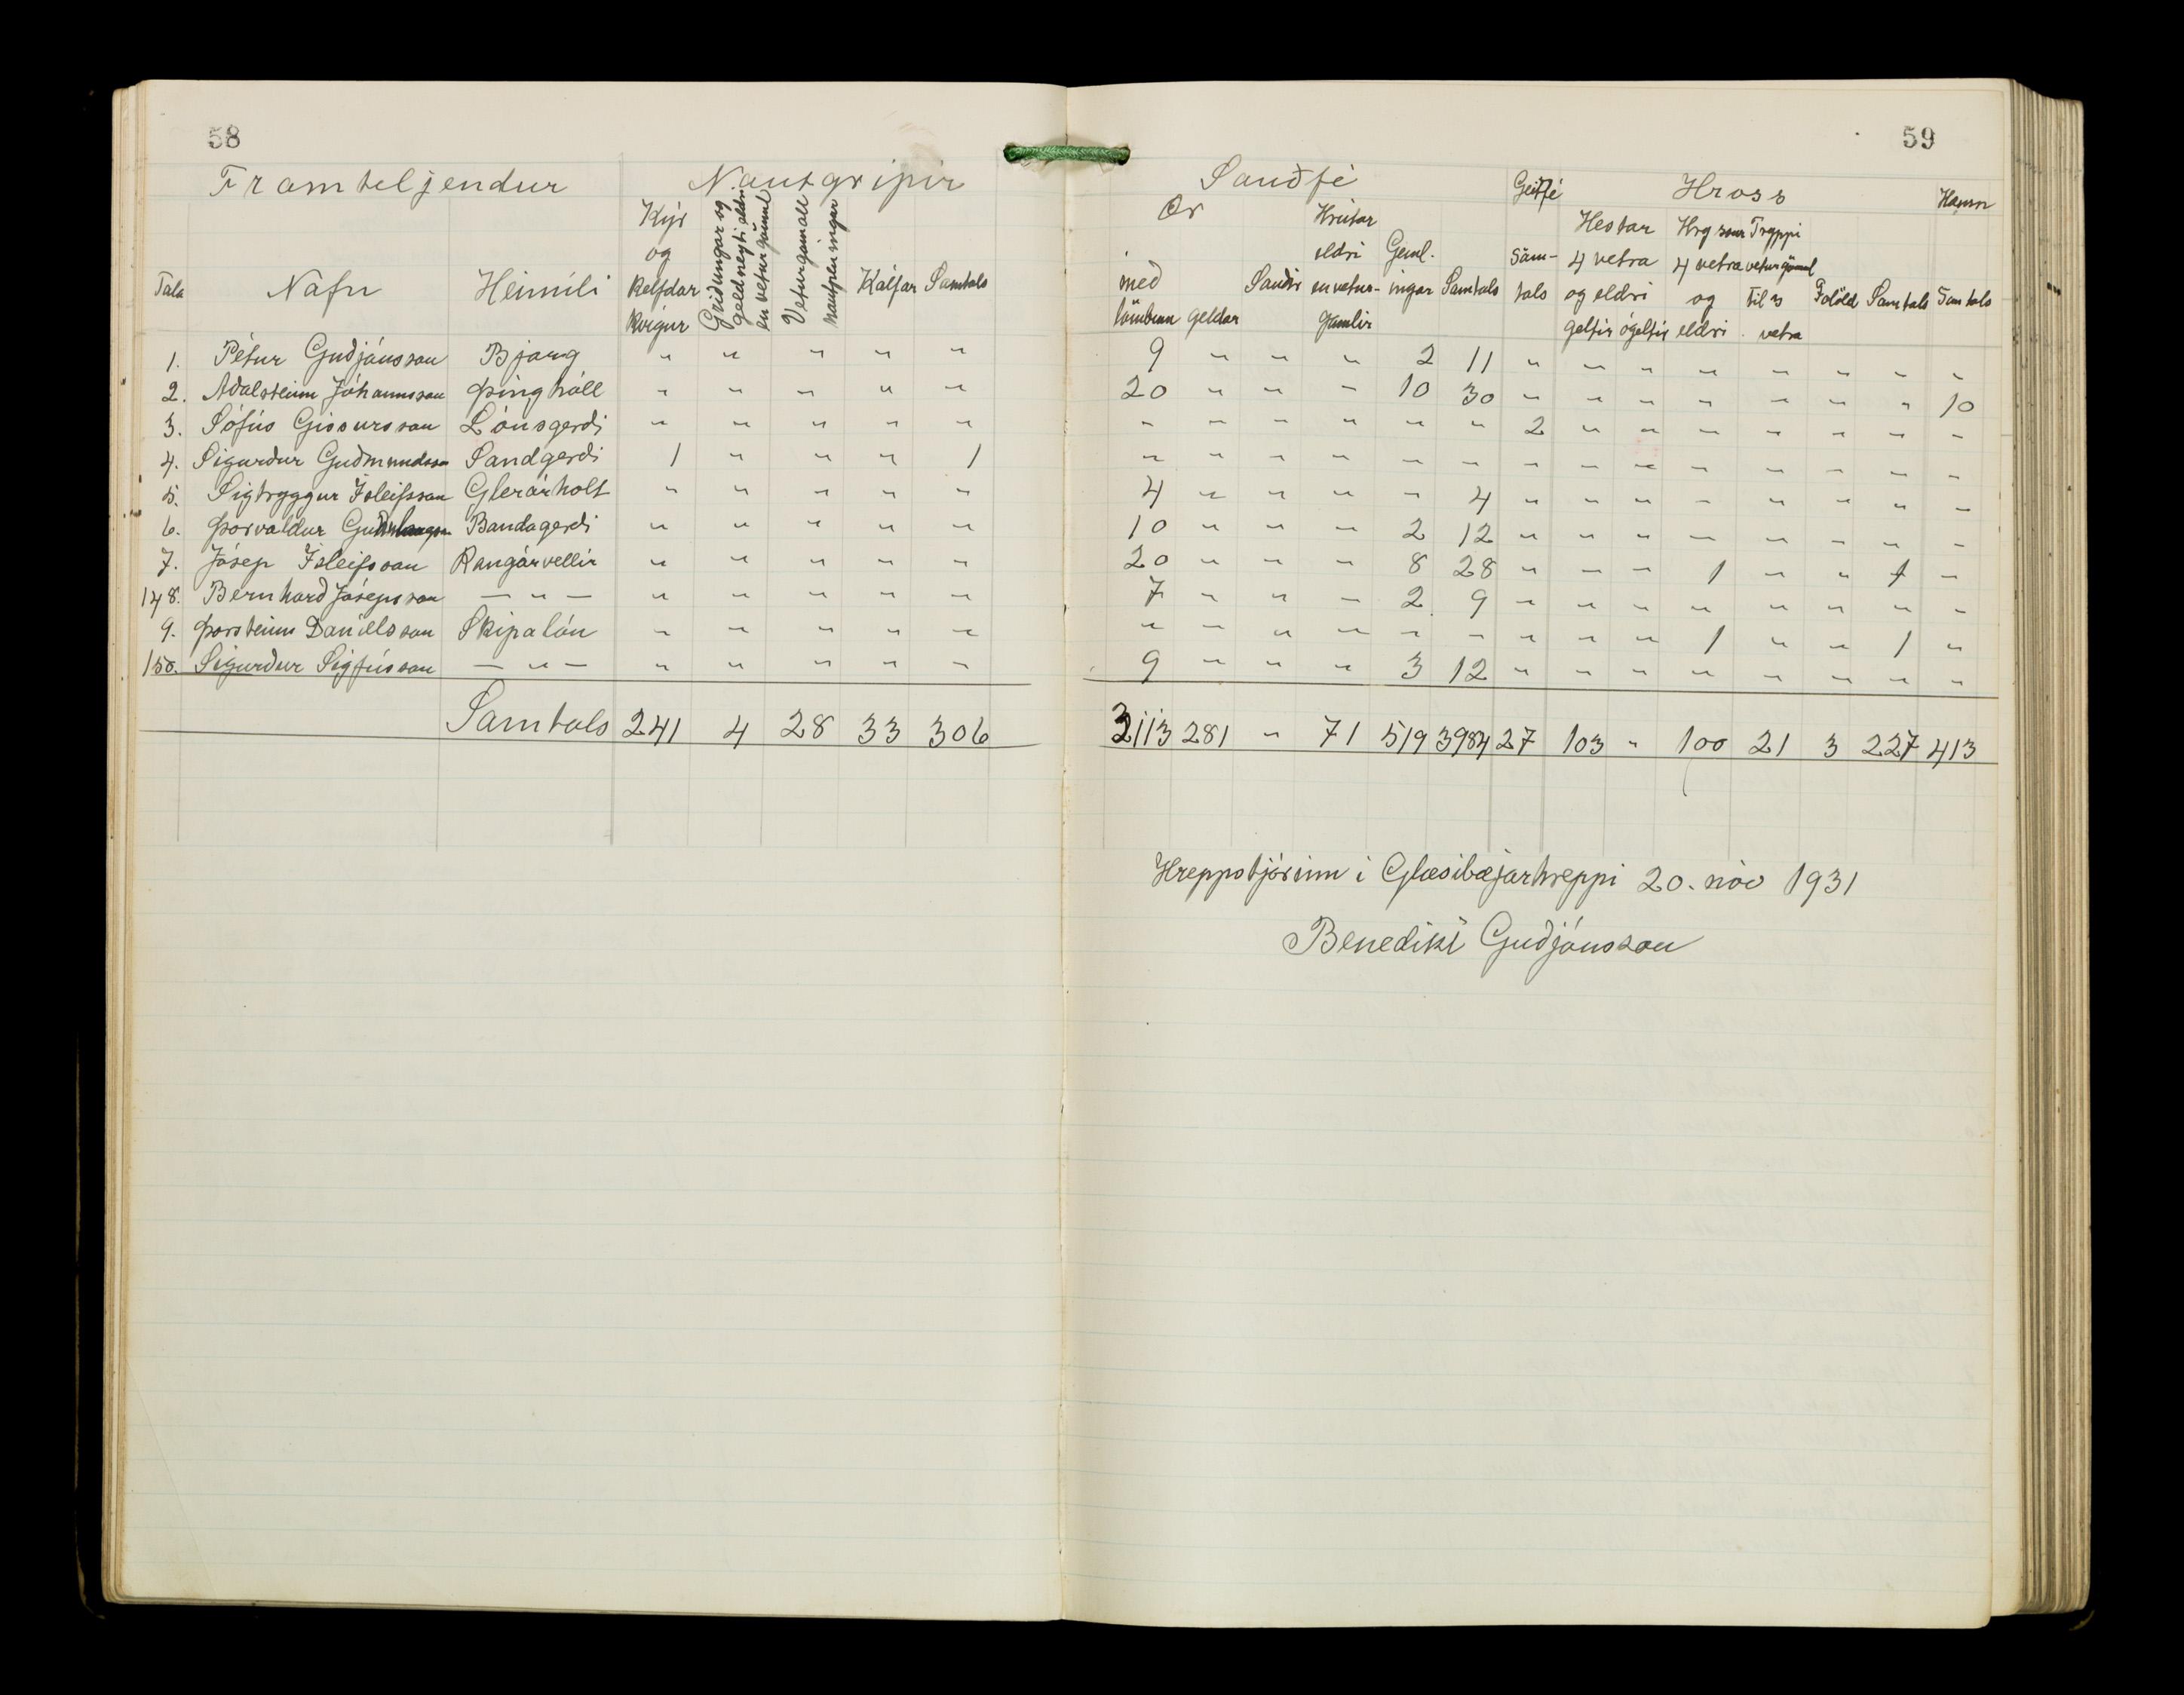 58
Framteljendur Nautgripir
Tala Nafn Heimili Kýr og kelfdar kvígur Griðungar og geldneyti eldri en vetur gömul Veturgamall nautpeningur Kálfar Samtals
1. Pétur Guðjónsson Bjarg " " " " "
2. Aðalsteinn Jóhannsson Þinghóll " " " " "
3. Sófús Gissursson Lónsgerði " " " " "
4. Sigurður Guðmundsson Sandgerði 1 " " " 1
5. Sigtryggur Ísleifsson Glerárholt " " " " "
6. Þorvaldur Bandagerði " " " " "
7. Jósep Ísleifsson Rangárvellir " " " " "
148. Bernharð Jósepsson — " — " " " " "
9. Þorsteinn Daníelsson Skipalón " " " " "
150. Sigurður Sigfússon — " — " " " " "
Samtals 241 4 28 33 306
59
Sauðfé Geitfé Hross Hæns
Ær með lömbum geldar Sauðir Hrútar eldri en vetur-gamlir Geml.ingar Samtals Sam-tals Hestar 4 vetra og eldri geltir ógeltir Hryssur 4 vetra og eldri Tryppi veturgömul til 3 vetra Folöld Samtals Samtals
9 " " " 2 11 " " " " " " " "
20 " " " 10 30 " " " " " " " 10
" " " " " " 2 " " " " " " "
" " " " " " " " " " " " " "
4 " " " " 4 " " " " " " " "
10 " " " 2 12 " " " " " " " "
20 " " " 8 28 " " " 1 " " 1 "
7 " " " 2 9 " " " " " " " "
" " " " " " " " " 1 " " 1 "
9 " " " 3 12 " " " " " " " "
3113 281 " 71 519 3984 27 103 " 100 21 3 227 413
Hreppstjórinn í Glæsibæjarhreppi 20. nóv 1931
Benedikt Guðjónsson